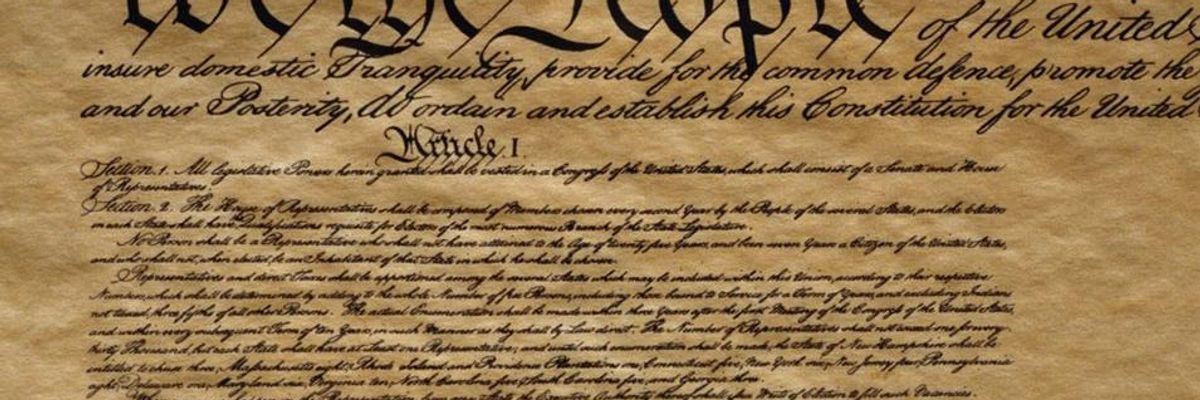 We the People of the United S
insure domestic Tranquility, provide for the common defence, promote the
and our Posterity, do ordain and establish this Constitution for the United
Article. I
Section. 1. All legislative Powers herein granted shall be vested in a Congress of the United States, which shall consist of a Senate and House
of Representatives.
Section. 2. The House of Representatives shall be composed of Members chosen every second Year by the People of the several States, and the Electors
in each State shall have Qualifications requisite for Electors of the most numerous Branch of the State Legislature.
No Person shall be a Representative who shall not have attained to the Age of twenty five Years, and been seven Years a Citizen of the United States,
and who shall not, when elected, be an Inhabitant of that State in which he shall be chosen.
Representatives and direct Taxes shall be apportioned among the several States which may be included within this Union, according to their respective
Numbers, which shall be determined by adding to the whole Number of free Persons, including those bound to Service for a Term of Years, and excluding Indians
not taxed, three fifths of all other Persons. The actual Enumeration shall be made within three Years after the first Meeting of the Congress of the United States,
and within every subsequent Term of ten Years, in such Manner as they shall by Law direct. The Number of Representatives shall not exceed one for every
thirty Thousand, but each State shall have at Least one Representative; and until such enumeration shall be made, the State of New Hampshire shall be
entitled to chuse three, Massachusetts eight, Rhode Island and Providence Plantations one, Connecticut five, New York six, New Jersey four, Pennsylvania
eight, Delaware one, Maryland six, Virginia ten, North Carolina five, South Carolina five, and Georgia three.
the Representation from any State, the Executive Authority thereof shall issue Writs of Election to fill such Vacancies.